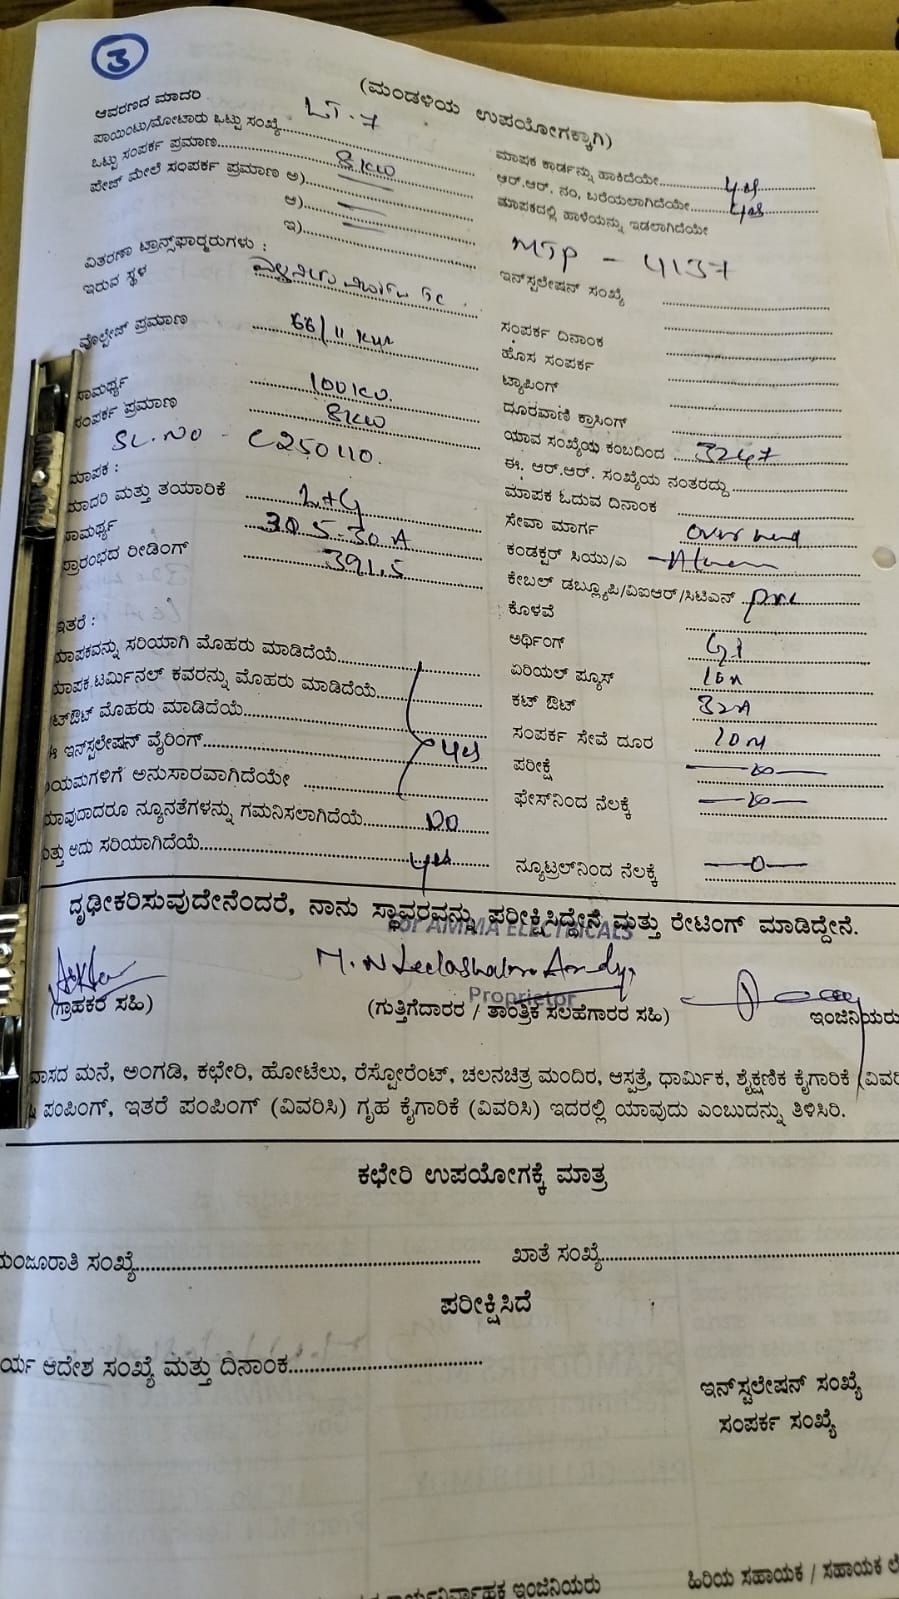 3
(ಮಂಡಳಿಯ ಉಪಯೋಗಕ್ಕಾಗಿ)
ಆವರಣದ ಮಾದರಿ LT-7
ಪಾಯಿಂಟು/ಮೋಟಾರು ಒಟ್ಟು ಸಂಖ್ಯೆ
ಒಟ್ಟು ಸಂಪರ್ಕ ಪ್ರಮಾಣ 8 KW
ಪೇಜ್ ಮೇಲೆ ಸಂಪರ್ಕ ಪ್ರಮಾಣ ಅ)
ಆ)
ಇ)
ವಿತರಣಾ ಟ್ರಾನ್ಸ್‌ಫಾರ್‍ಮರುಗಳು :
ಇರುವ ಸ್ಥಳ
ವೊಲ್ಟೇಜ್ ಪ್ರಮಾಣ 66/11
ಸಾಮರ್ಥ್ಯ 100
ಸಂಪರ್ಕ ಪ್ರಮಾಣ 8KW
SL. NO - C250110.
ಮಾಪಕ :
ಮಾದರಿ ಮತ್ತು ತಯಾರಿಕೆ L+G
ಸಾಮರ್ಥ್ಯ 30 5-30 A
ಪ್ರಾರಂಭದ ರೀಡಿಂಗ್ 391.5
ಇತರೆ :
ಮಾಪಕವನ್ನು ಸರಿಯಾಗಿ ಮೊಹರು ಮಾಡಿದೆಯೆ
ಮಾಪಕ ಟರ್ಮಿನಲ್ ಕವರನ್ನು ಮೊಹರು ಮಾಡಿದೆಯೆ
ಕಟ್‌ಔಟ್ ಮೊಹರು ಮಾಡಿದೆಯೆ
ಈ ಇನ್‌ಸ್ಟಲೇಷನ್ ವೈರಿಂಗ್ yes
ನಿಯಮಗಳಿಗೆ ಅನುಸಾರವಾಗಿದೆಯೇ
ಯಾವುದಾದರೂ ನ್ಯೂನತೆಗಳನ್ನು ಗಮನಿಸಲಾಗಿದೆಯೆ NO
ಮತ್ತು ಅದು ಸರಿಯಾಗಿದೆಯೆ yes
ಮಾಪಕ ಕಾರ್ಡನ್ನು ಹಾಕಿದೆಯೇ yes
ಆರ್.ಆರ್. ನಂ, ಬರೆಯಲಾಗಿದೆಯೇ yes
ಮಾಪಕದಲ್ಲಿ ಹಾಳೆಯನ್ನು ಇಡಲಾಗಿದೆಯೇ
MTP - 4137
ಇನ್‌ಸ್ಟಲೇಷನ್ ಸಂಖ್ಯೆ
ಸಂಪರ್ಕ ದಿನಾಂಕ
ಹೊಸ ಸಂಪರ್ಕ
ಟ್ಯಾಪಿಂಗ್
ದೂರವಾಣಿ ಕ್ರಾಸಿಂಗ್
ಯಾವ ಸಂಖ್ಯೆಯ ಕಂಬದಿಂದ 3247
ಈ. ಆರ್.ಆರ್. ಸಂಖ್ಯೆಯ ನಂತರದ್ದು
ಮಾಪಕ ಓದುವ ದಿನಾಂಕ
ಸೇವಾ ಮಾರ್ಗ Over head
ಕಂಡಕ್ಟರ್ ಸಿಯು/ಎ
ಕೇಬಲ್ ಡಬ್ಲ್ಯೂಪಿ/ವಿಐಆರ್/ಸಿಟಿಎಸ್ pvc
ಕೊಳವೆ
ಅರ್ಥಿಂಗ್ GI
ಏರಿಯಲ್ ಪ್ಯೂಸ್
ಕಟ್ ಔಟ್ 32A
ಸಂಪರ್ಕ ಸೇವೆ ದೂರ 10 M
ಪರೀಕ್ಷೆ
ಫೇಸ್‌ನಿಂದ ನೆಲಕ್ಕೆ
ನ್ಯೂಟ್ರಲ್‌ನಿಂದ ನೆಲಕ್ಕೆ —0—
ದೃಢೀಕರಿಸುವುದೇನೆಂದರೆ, ನಾನು ಸ್ಥಾವರವನ್ನು ಪರೀಕ್ಷಿಸಿದ್ದೇನೆ ಮತ್ತು ರೇಟಿಂಗ್ ಮಾಡಿದ್ದೇನೆ.
For AMMA ELECTRICALS
Proprietor
(ಗ್ರಾಹಕರ ಸಹಿ) (ಗುತ್ತಿಗೆದಾರರ / ತಾಂತ್ರಿಕ ಸಲಹೆಗಾರರ ಸಹಿ) ಇಂಜಿನಿಯರು
ವಾಸದ ಮನೆ, ಅಂಗಡಿ, ಕಛೇರಿ, ಹೋಟೆಲು, ರೆಸ್ಟೋರೆಂಟ್, ಚಲನಚಿತ್ರ ಮಂದಿರ, ಆಸ್ಪತ್ರೆ, ಧಾರ್ಮಿಕ, ಶೈಕ್ಷಣಿಕ ಕೈಗಾರಿಕೆ (ವಿವರಿ
ಪಂಪಿಂಗ್, ಇತರೆ ಪಂಪಿಂಗ್ (ವಿವರಿಸಿ) ಗೃಹ ಕೈಗಾರಿಕೆ (ವಿವರಿಸಿ) ಇದರಲ್ಲಿ ಯಾವುದು ಎಂಬುದನ್ನು ತಿಳಿಸಿರಿ.
ಕಛೇರಿ ಉಪಯೋಗಕ್ಕೆ ಮಾತ್ರ
ಮಂಜೂರಾತಿ ಸಂಖ್ಯೆ ಖಾತೆ ಸಂಖ್ಯೆ
ಪರೀಕ್ಷಿಸಿದೆ
ರ್ಯ ಆದೇಶ ಸಂಖ್ಯೆ ಮತ್ತು ದಿನಾಂಕ
ಇನ್‌ಸ್ಟಲೇಷನ್ ಸಂಖ್ಯೆ
ಸಂಪರ್ಕ ಸಂಖ್ಯೆ
ಕಾರ್ಯನಿರ್ವಾಹಕ ಇಂಜಿನಿಯರು ಹಿರಿಯ ಸಹಾಯಕ / ಸಹಾಯಕ ಲೆ